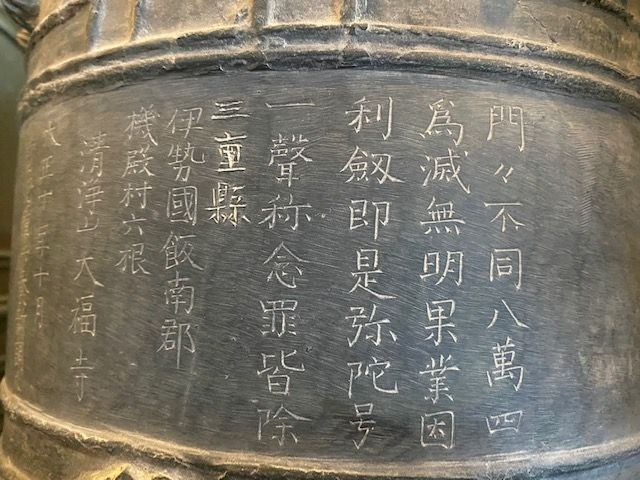 門々不同八萬四
爲滅無明果業因
利劔即是弥陀号
一聲称念罪皆除
三重縣
伊勢國飯南郡
機殿村六根
清浄山大福寺
大正十三年十月